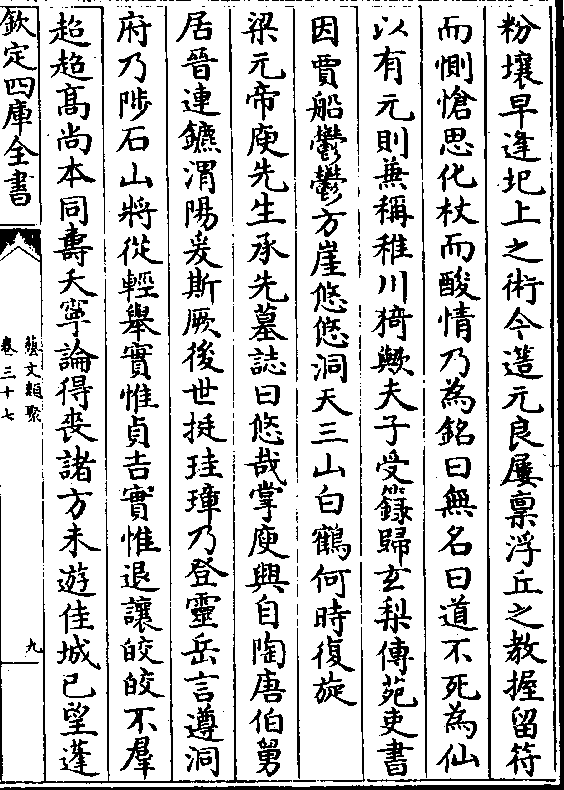 粉壤早逢圯上之術今造元良屢稟浮丘之教握留符
而惻愴思化杖而酸情乃為銘曰無名曰道不死為仙
以有元則兼稱稚川猗歟夫子受籙歸玄梨傳苑吏書
因賈船鬱鬱方崖悠悠洞天三山白鶴何時復旋
梁元帝庾先生承先墓誌曰悠哉掌庾興自陶唐伯舅
居晉連鑣渭陽爰斯厥後世挺珪璋乃登靈岳言遵洞
府乃陟石山將從輕舉實惟貞吉實惟退讓皎皎不羣
超超高尚本同壽夭寧論得喪諸方未遊佳城已望蓬
欽定四庫全書
藝文類聚
卷三十七
九